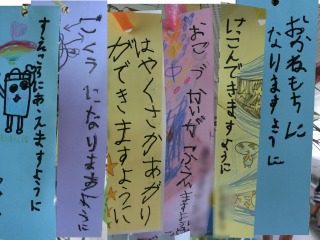 おかねもちに
なりますように
けっこんできますように
おこづかいがふえ
ますように
はやくさかあがり
ができますように
になりますように
にあえますように